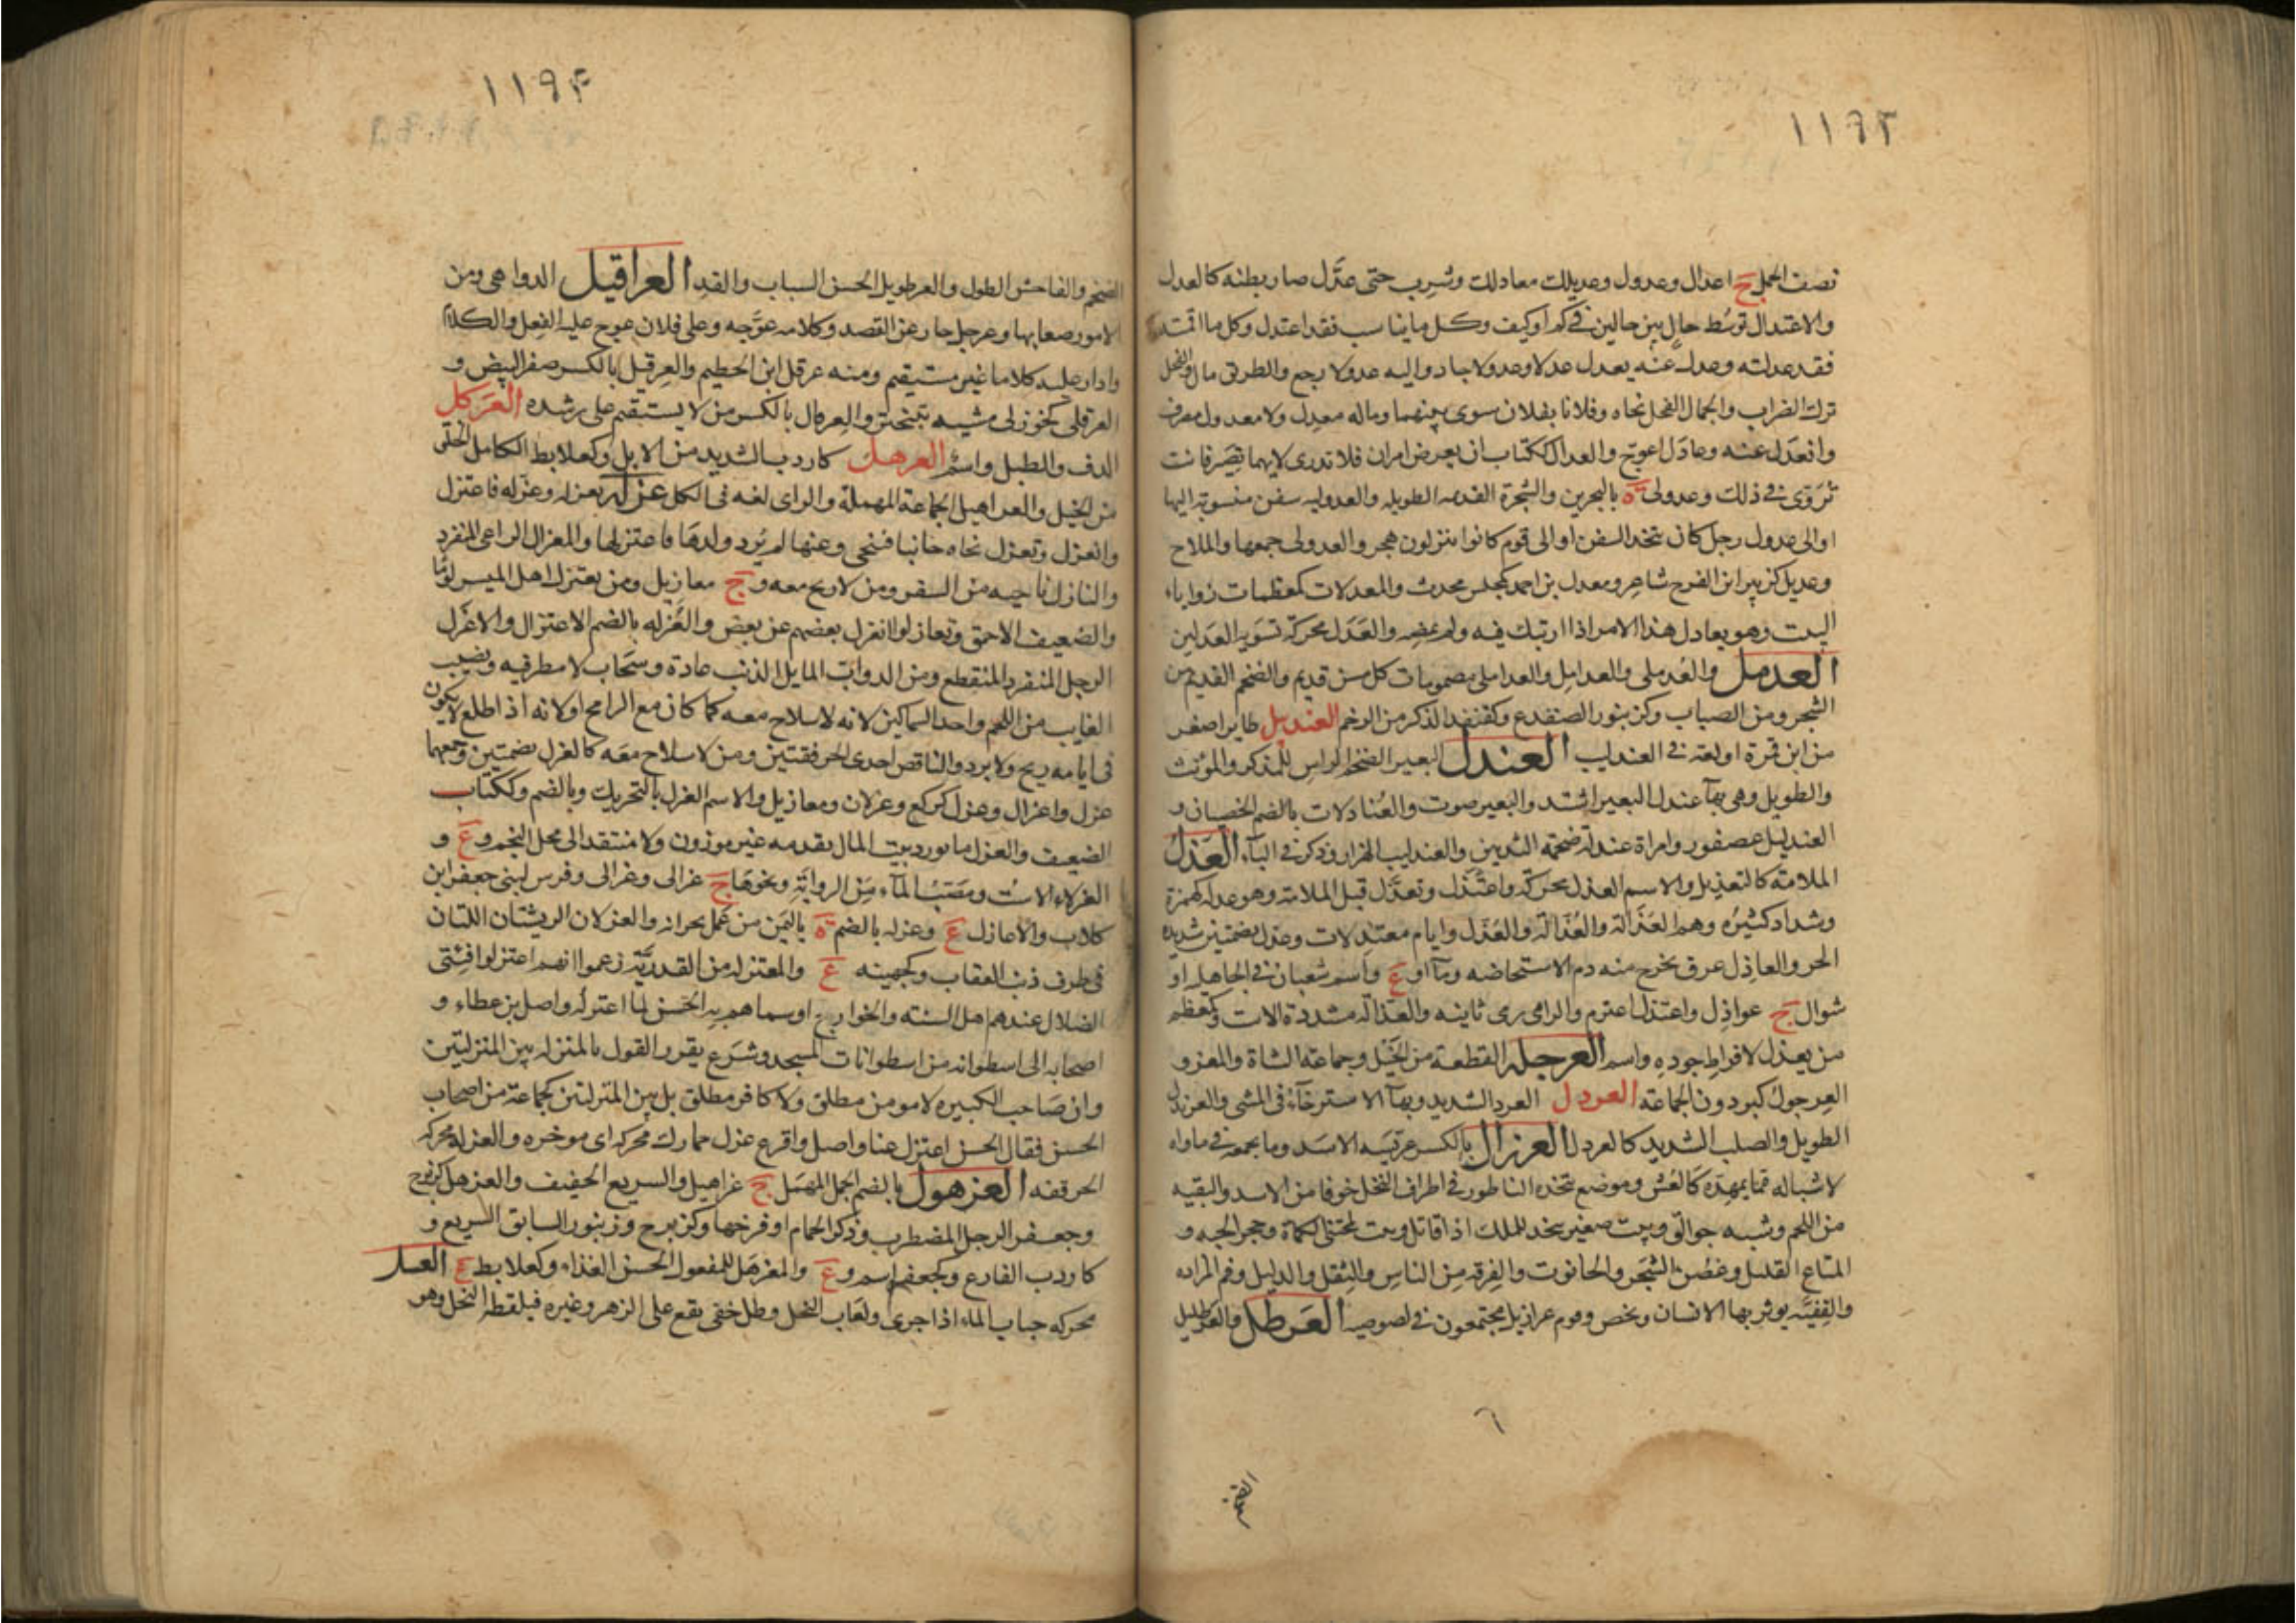 ١١٩٣
نصف الحمل ج اعدال وعدول وعديلك معادلك وشرب حتى عدَّل صار بطنه كالعدل
والاعتدال توسُط حالٍ بين حالين فى كم اوكيف وكل ما يناسب فقد اعتدل وكل ما اقمته
فقد عدلته وعدل عنه يعدل عدلا وعدولا حاد واليه عدولا رجع والطريق مال والفحل
ترك الضراب والجمال الفحل نحاه وفلانا بفلان سوى بينهما وماله معدل ولا معدول مصرف
وانعدل عنه وعادل اعوجّ والعدال ككتاب ان يعرض امران فلا تدرى لايهما تصير فانت
تروّى فى ذلك وعدولى ة بالبحرين والشجرة القديمه الطويله والعدوليه سفن منسوبة اليها
او الى عدول رجل كان يتخذ السفن او الى قوم كانوا ينزلون هجر والعدولى جمعها والملاح
وعديل كزبير ابن الفرخ شاعر ومعدل بن احمد كمجلس محدث والمعدلات كمعظمات زوايا
البيت وهو يعادل هذا الامر اذا ارتبك فيه ولم يمضه والعَدَل محركة تسوية العدلين
العدمل والعُدملى والعدامِل والعداملى مضمومات كل مسن قديم والضخم القديم من
الشجر ومن الضباب وكزنبور الضفدع وكقنفذ الذكر من الرخم العنديل طاير اصغر
من ابن تمرة او لغة فى العندليب العندل البعير الضخم الراس للمذكر والمؤنث
والطويل وهى بهآ عندل البعير اشتد والبعير صوت والعُنادلان بالضم الخصيان و
العنديل عصفور وامراة عندلة ضخمة الثديين والعندليب الهزار وذكر فى البآء العَذْل
الملامة كالتعذيل والاسم العذل محركة واعتذل وتعذَّل قبل الملامة وهو عذله كهمزة
وشداد كثيرُه وهم العَذَالة والعُذَّالة والعُذَّل وايام معتذلات وعذل بضمتين شديده
الحر والعاذِل عرق يخرج منه دم الاستحاضه ومآ او ع واسم شعبان فى الجاهليه او
شوال ج عواذِل واعتذل اعتزم والرامى رمى ثانيه والعذّالة مشددة الاست وكمعظم
من يعذل لافراطِ جودهِ واسم العرجلة القطعة من الخيل وجماعة الشاة والمعز و
العِرجول كبرذون الجماعة العردل العرد الشديد وبهآ الاسترخآء فى المشى والعرندل
الطويل والصلب الشديد كالعردل العرزال بالكسر عرّيسة الاسد وما يجمعه فى ماواه
لاشباله مما يمهده كَالعُش وموضع يتخذه الناطور فى اطراف النخل خوفا من الاسد والبقيه
من اللحم وشبه جوالق وبيت صغير يتخذ للملك اذا قاتل وبيت لمجتنى الكماة وجحر الحيه و
المتاع القليل وغُصْن الشجَر والحانوت والفرقة من الناس والثقل والذليل وفم المزاده
والقِفيَّه يوثر بها الانسان ويخص وقوم عرازيل مجتمعون فى لصوصيه العَرطل والعرطليل
١١٩۴
الضخم والفاحش الطول والعرطويل الحسن الشباب والقد العراقيل الدواهى ومن
الامور صعابها وعرجل جار عن القصد وكلامه عوَّجه وعلى فلان عوج عليه الفعل والكلام
وادار عليه كلاما غير مستيقيم ومنه عرقل ابن الخطيم والعِرقيل بالكسر صفر البيض و
العرقلى كخوزلى مشيه بتبختر والعِرقال بالكسر من لا يستقيم على رشده العَركل
الدف والطبل واسم العرهل كاردب الشديد من الابل وكعلابط الكامل الخلق
من الخيل والعراهيل الجماعة المهملة والراى لغه فى الكل عزله يعزله وعزله فاعتزل
وانعزل وتعزل نحاه جانبا فتنحى وعنها لم يُرد ولدها كاعتزلها والمعزال الراعى المنفرد
والنازل ناحيه من السفر ومن لا رمح معه وج معازيل ومن يعتزل اهل الميسر لومًا
والضعيف الاحمق وتعازلوا انعزل بعضهم عن بعض والعُزله بالضم الاعتزال والاعزل
الرجل المنفرد المنقطع ومن الدوابّ المايل الذنب عادة وسحاب لا مطر فيه ونصيب
الغايب من اللحم واحد السماكين لانه لا سلاح معه كما كان مع الرامح او لانه اذا طلع لا يكون
فى ايامه ريح ولا برد والناقص احدى الحرقفتين ومن لا سلاح معَه كالعزل بضمتين وجمعهما
عزل واعزال وعزل كركع وعزلان ومعازيل والاسم العزل بالتحريك وبالضم وككتاب
الضعيف والعزل ما يورد بيت المال تقدمه غير موزون ولا منتقد الى محل النجم وع و
العزلاء الاست ومصَبُ المآء مِن الراوية ونحوها ج عزالى وعزالى وفرس لبنى جعفر ابن
كلاب والاعازل ع وعزله بالضم ة باليمن من عمل بحرانه والعزلان الريشتان اللتان
فى طرف ذنب العقاب وكجهينه ع والمعتزله من القدريَّة زعموا انهم اعتزلوا فئتى
الضلال عندهم اهل السنّه والخوارج او سماهم به الحَسَن لما اعتزله واصل بن عطاء و
اصحابه الى اسطوانه من اسطوانات المسجد وشَرَع يقرر القول بالمنزلة بين المنزلتين
وان صاحب الكبيره لا مومن مطلق ولا كافر مطلق بل بين المنزلتين كجماعة من اصحاب
الحسن فقال الحسن اعتزل عنا واصل واقرع عزل حمارك محركه اى موخره والعزله محركه
الحرقفه العزهول بالضم الجمل المهمَل ج عزاهيل والسريع الخفيف والعزهل كزبرج
وجعفر الرجل المضطرب وذكر الحمام او فرخها وكزبرج وزنبور السابق السريع و
كاردب الفارع وكجعفر اسم وع والمعزهَل للمفعول الحسن الغذاء وكعلابط ع العسل
محركه حباب الماء اذا جرى ولعَاب النحل وطل خفى يقع على الزهر وغيره فيلقطه النحل وهو
٦